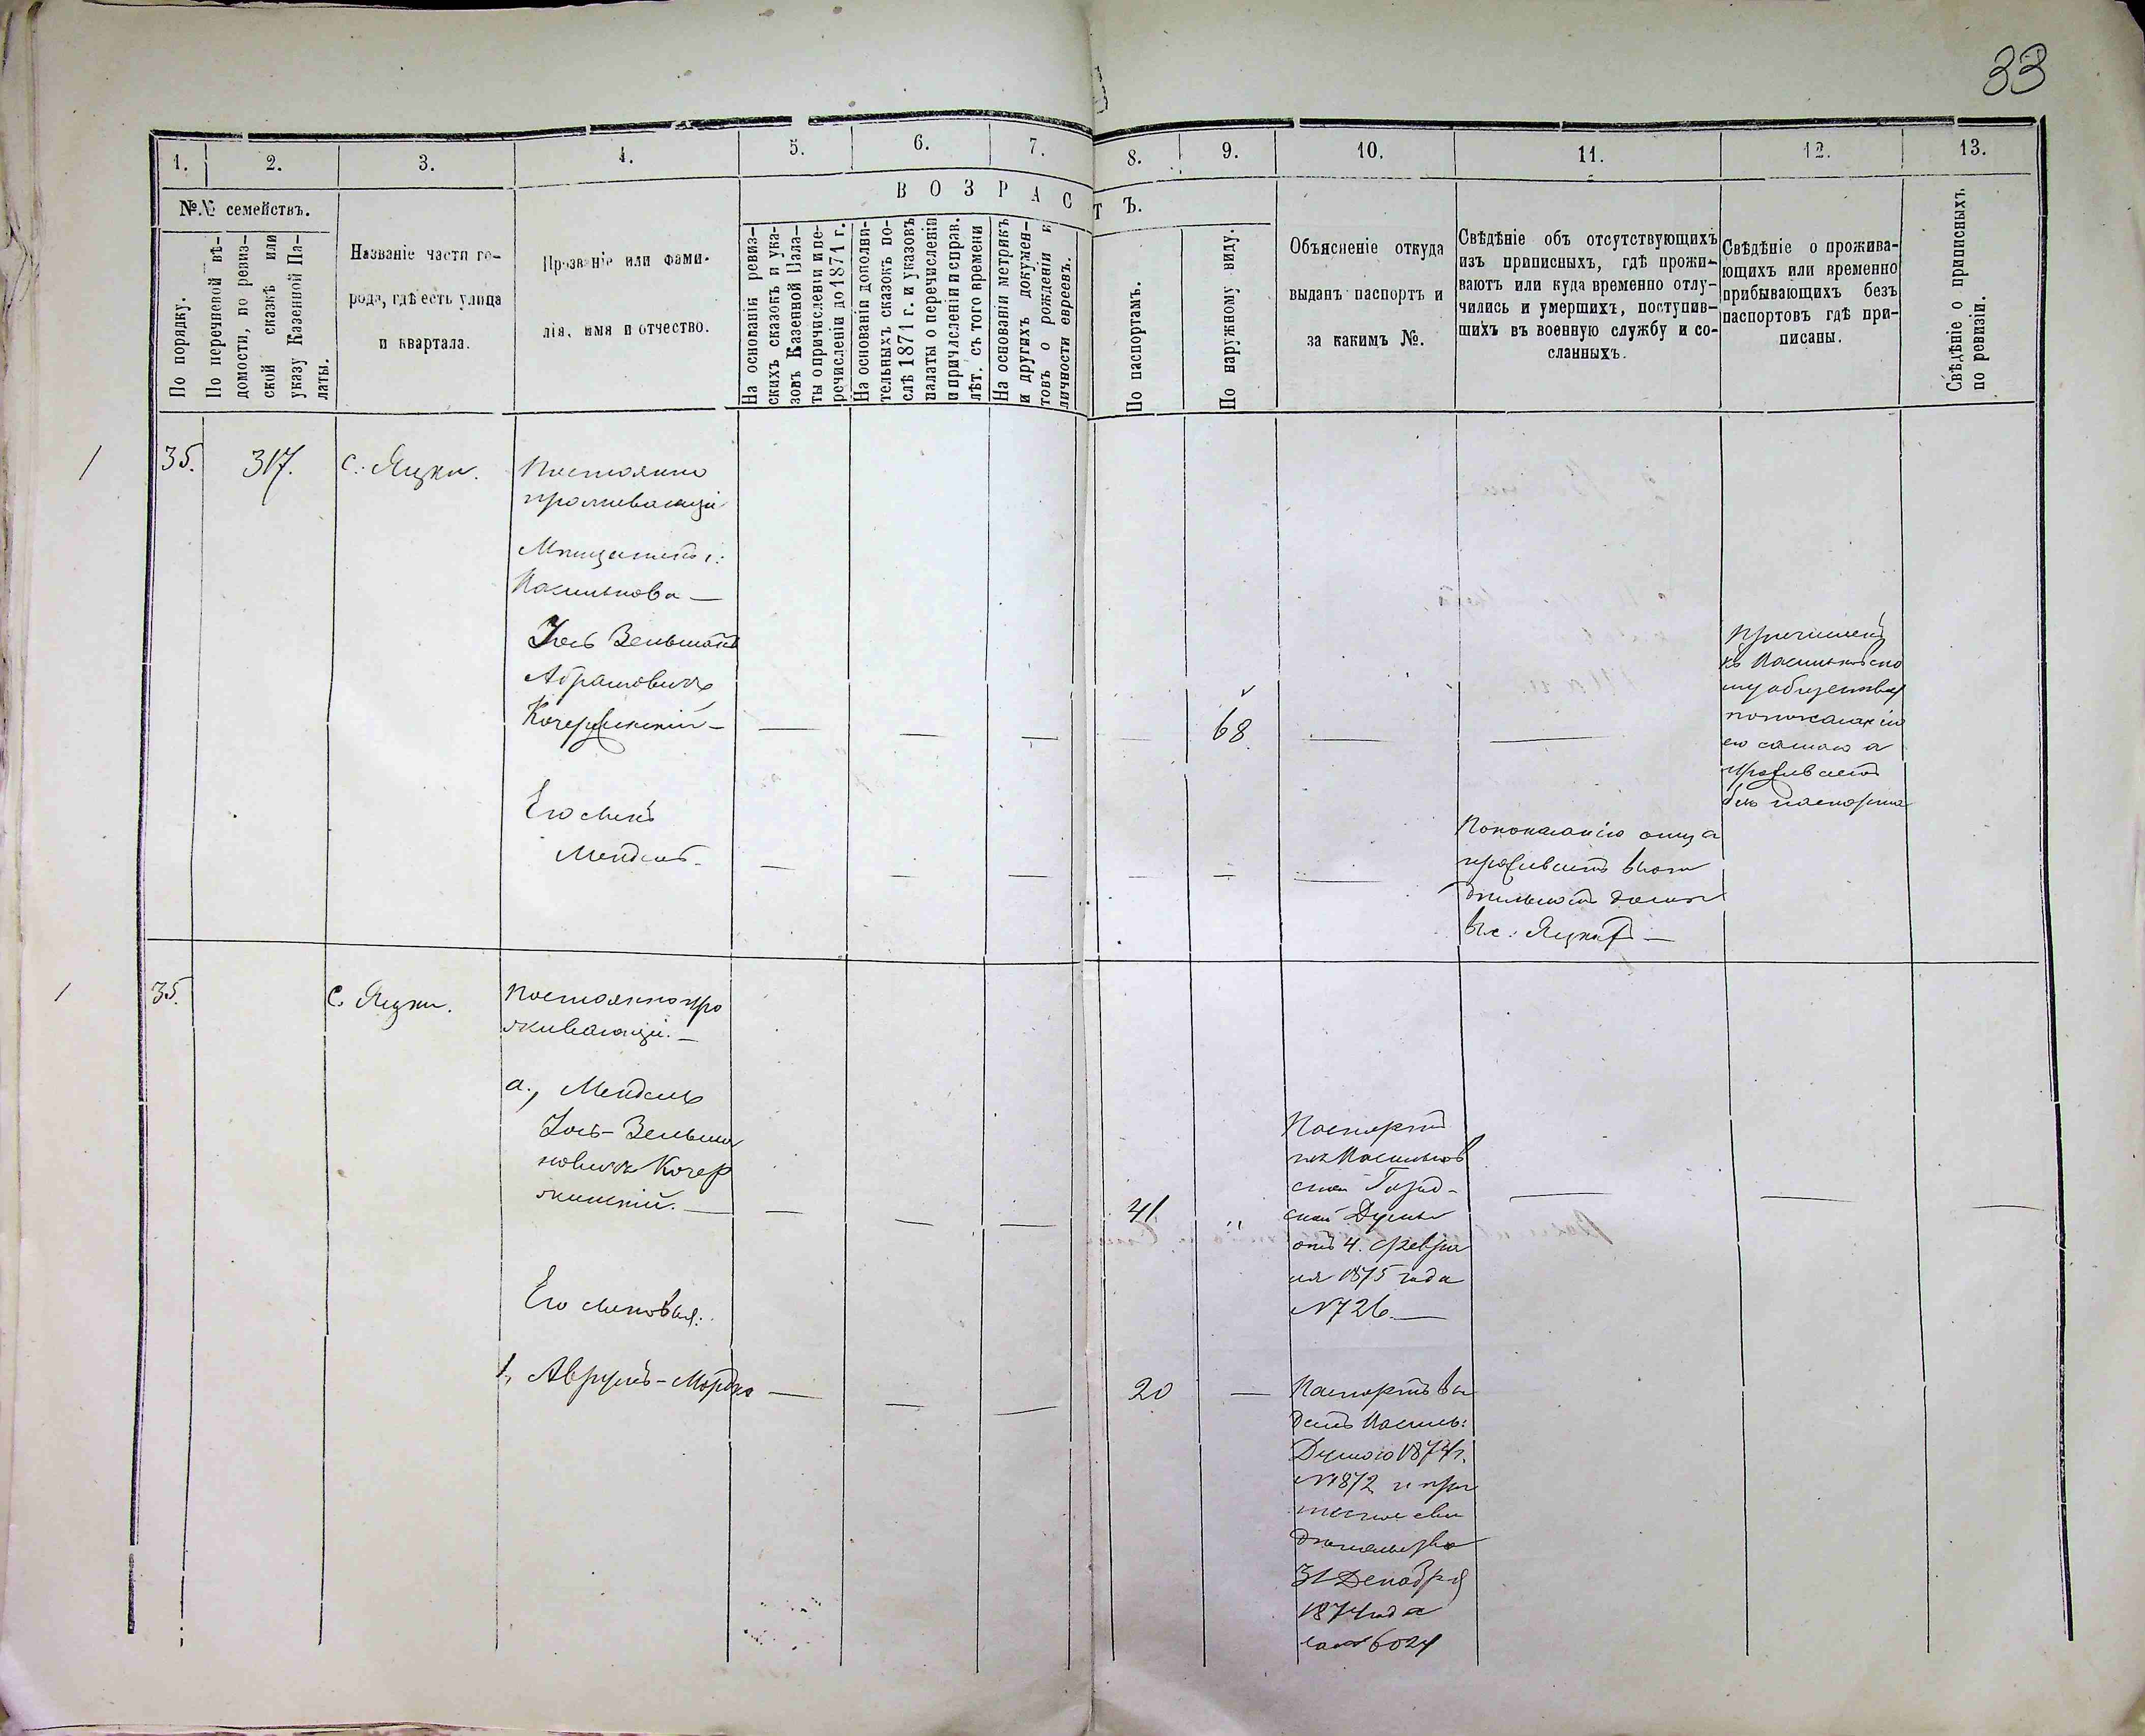 33
1. 2. 3. 4. 5. 6. 7. 8. 9. 10. 11. 12. 13.
№№ семействъ.
ВОЗРАСТЪ.
По порядку.
По перечневой вѣ-
домости, по ревиз-
ской сказкѣ или
указу Казенной Па-
латы.
Названіе части го-
рода, гдѣ есть улица
и квартала.
Прозваніе или фами-
лія, имя и отчество.
На основаніи ревиз-
скихъ сказокъ и ука-
зовъ Казенной Пала-
ты о причисленіи и пе-
речисленіи до 1871 г.
На основаніи дополни-
тельныхъ сказокъ по-
слѣ 1871 г. и указовъ
палаты о перечисленіи
и причисленіи и справ.
лѣт. съ того времени
На основаніи метрикъ
и другихъ докумен-
товъ о рожденіи и
личности евреевъ.
По паспортамъ.
По наружному виду.
Объясненіе откуда
выданъ паспортъ и
за какимъ №.
Свѣдѣніе объ отсутствующихъ
изъ приписныхъ, гдѣ прожи-
ваютъ или куда временно отлу-
чились и умершихъ, поступив-
шихъ въ военную службу и со-
сланныхъ.
Свѣдѣніе о прожива-
ющихъ или временно
прибывающихъ безъ
паспортовъ гдѣ при-
писаны.
Свѣдѣніе о приписныхъ
по ревизіи.
1 35. 317. с: Яцки. Постоянно
проживающіе
Мѣщанинъ г:
Василькова —
Іось Зельманъ
Абрамовичъ
Кочержинскій — 68.
Причисленъ
къ Васильковско
му обществу
по показанію
его самого а
проживаетъ
безъ паспорта
Его сынъ
Мендель
По показанію отца
проживаетъ въ от
дѣльномъ домѣ
въ с: Яцкахъ —
1 35. С. Яцки. Постоянно про
живающіе. —
а., Мендель
Іось-Зельма
новичъ Кочер
жинскій. — 41 "
Паспортъ
изъ Васильков
ской Город-
ской Думы
отъ 4. Февра
ля 1875 года
№ 726 —
Его сыновья:
1, Аврумъ-Мордко — 20 —
Паспортъ вы
данъ Василь:
Думою 1874 г.
№ 1872 и при
писное сви
дѣтельство
31 Декабря
1874 года
за № 6024